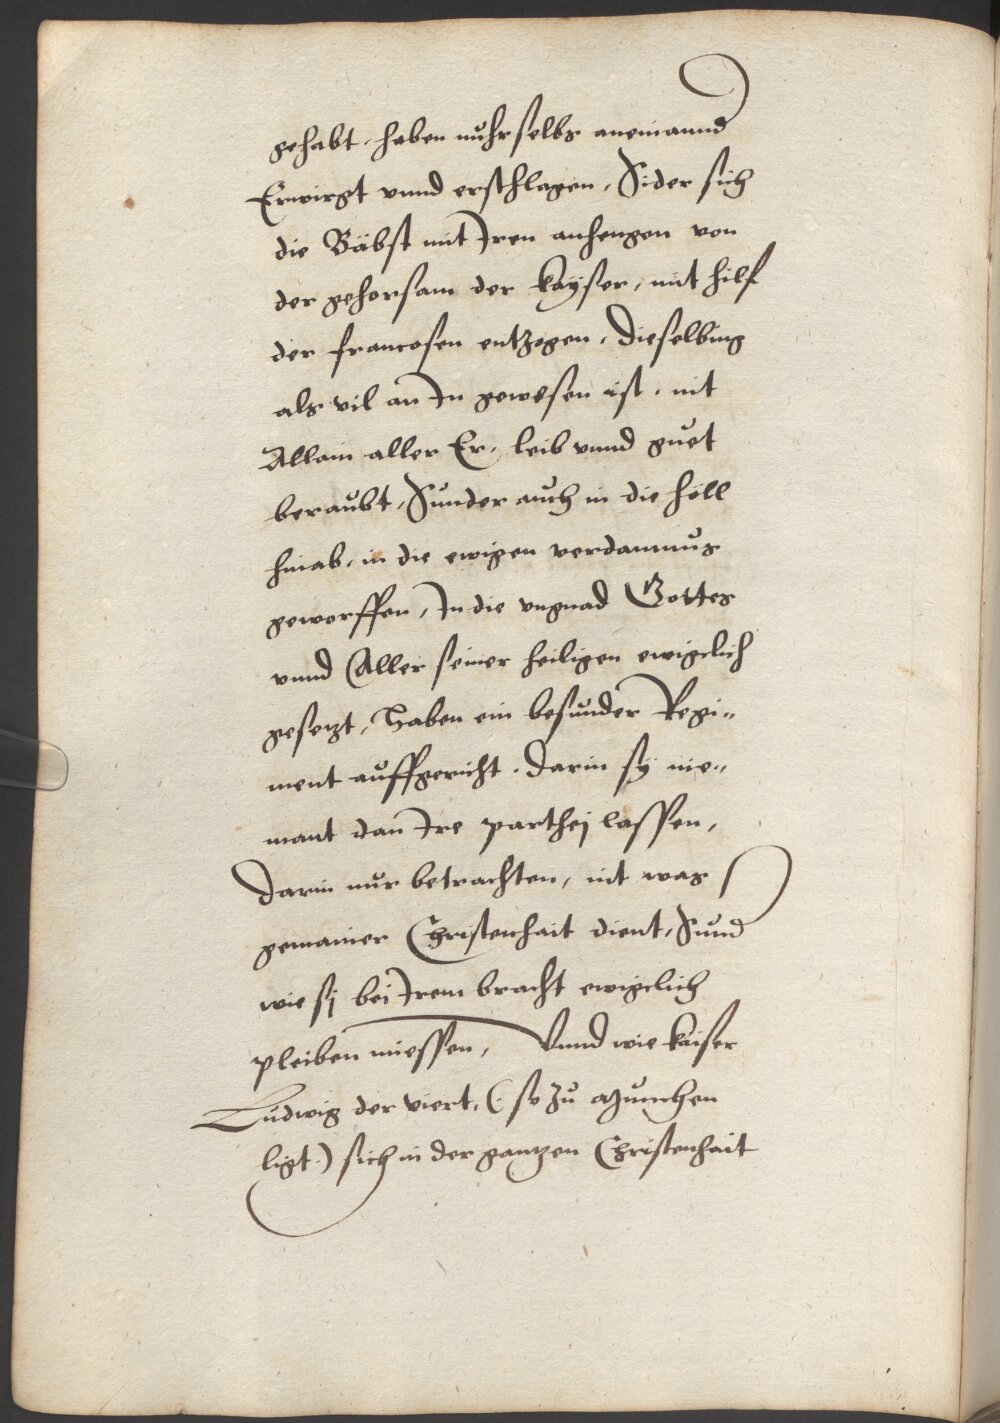 gehabt, haben nuhr selbs aneinannd
Erwirgt vnnd erschlagen, Sider sich
die Bäbst mit Iren anhengen von
der gehorsam der kayser, mit hilf
der francosen entzogen, Dieselbing
als vil an In gewesen ist, nit
Allain aller Er, leib vnnd guet
beraubt, Sunder auch in die hell
hinab, in die ewigen verdamnus
geworffen, In die vngnad Gottes
vnnd Aller seiner heiligen ewigclich
gesetzt, Haben ein besunder Regi¬
ment auffgericht, darin sy nie¬
mant dan Ire parthej lassen,
Darin nur betrachten, nit was
gemainer Christenhait dient, Sund
wie sj bei Irem bracht ewigclich
pleiben miessen, Vnnd wie kaiser
Ludwig der viert, (so zu Munchen
ligt) sich in der gantzen Christenhait